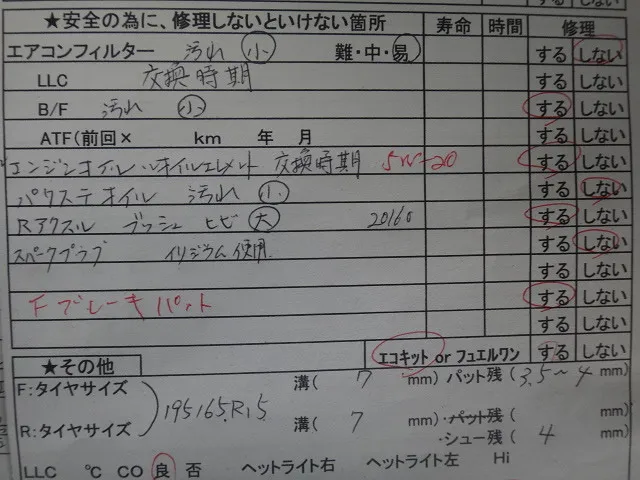 ★安全の為に、修理しないといけない箇所 寿命 時間 修理
エアコンフィルター 汚れ 小 難・中・易 する しない
LLC 交換時期 する しない
B/F 汚れ 小 する しない
ATF(前回× km 年 月 する しない
エンジンオイル・オイルエレメント 交換時期 5W-20 する しない
パワステオイル 汚れ 小 する しない
Rアクスル ブッシュ ヒビ 大 20160 する しない
スパークプラグ イリジウム使用 する しない
する しない
Fブレーキパット する しない
する しない
★その他 エコキット or フュエルワン する しない
F:タイヤサイズ 195/65R15 溝( 7 mm) パット残( 3.5~4 mm)
R:タイヤサイズ 溝( 7 mm)・パット残( mm)
・シュー残( 4 mm)
LLC ℃ CO 良 否 ヘットライト右 ヘットライト左 Hi